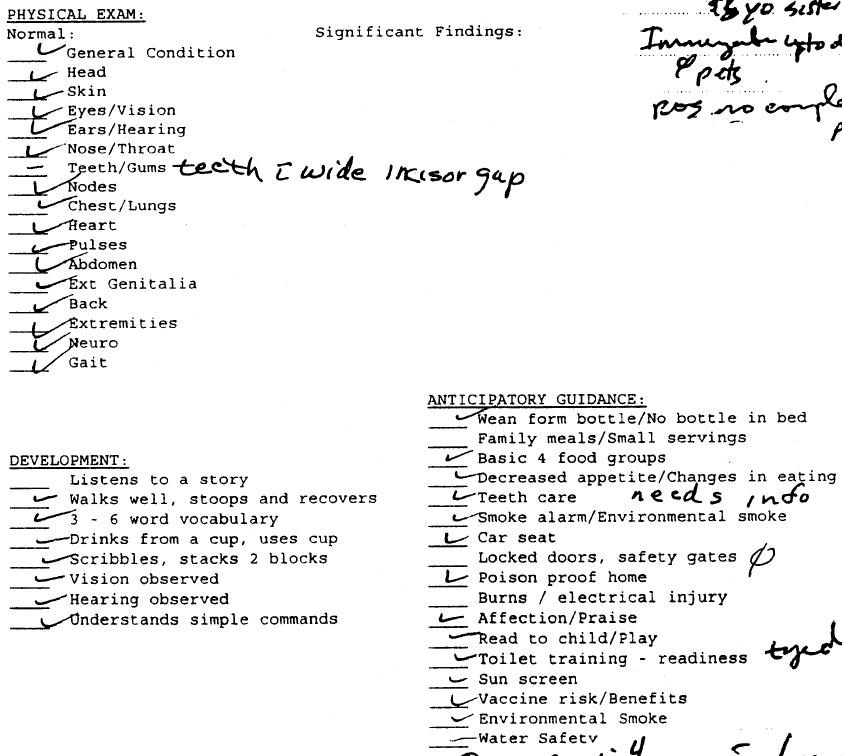 PHYSICAL EXAM:
Normal: Significant Findings:
General Condition
Head
Skin
Eyes/Vision
Ears/Hearing
Nose/Throat
Teeth/Gums teeth c wide incisor gap
Nodes
Chest/Lungs
Heart
Pulses
Abdomen
Ext Genitalia
Back
Extremities
Neuro
Gait
yo sister
pets
ROS no
DEVELOPMENT:
Listens to a story
Walks well, stoops and recovers
3 - 6 word vocabulary
Drinks from a cup, uses cup
Scribbles, stacks 2 blocks
Vision observed
Hearing observed
Understands simple commands
ANTICIPATORY GUIDANCE:
Wean form bottle/No bottle in bed
Family meals/Small servings
Basic 4 food groups
Decreased appetite/Changes in eating
Teeth care needs info
Smoke alarm/Environmental smoke
Car seat
Locked doors, safety gates Ø
Poison proof home
Burns / electrical injury
Affection/Praise
Read to child/Play
Toilet training - readiness
Sun screen
Vaccine risk/Benefits
Environmental Smoke
Water Safety